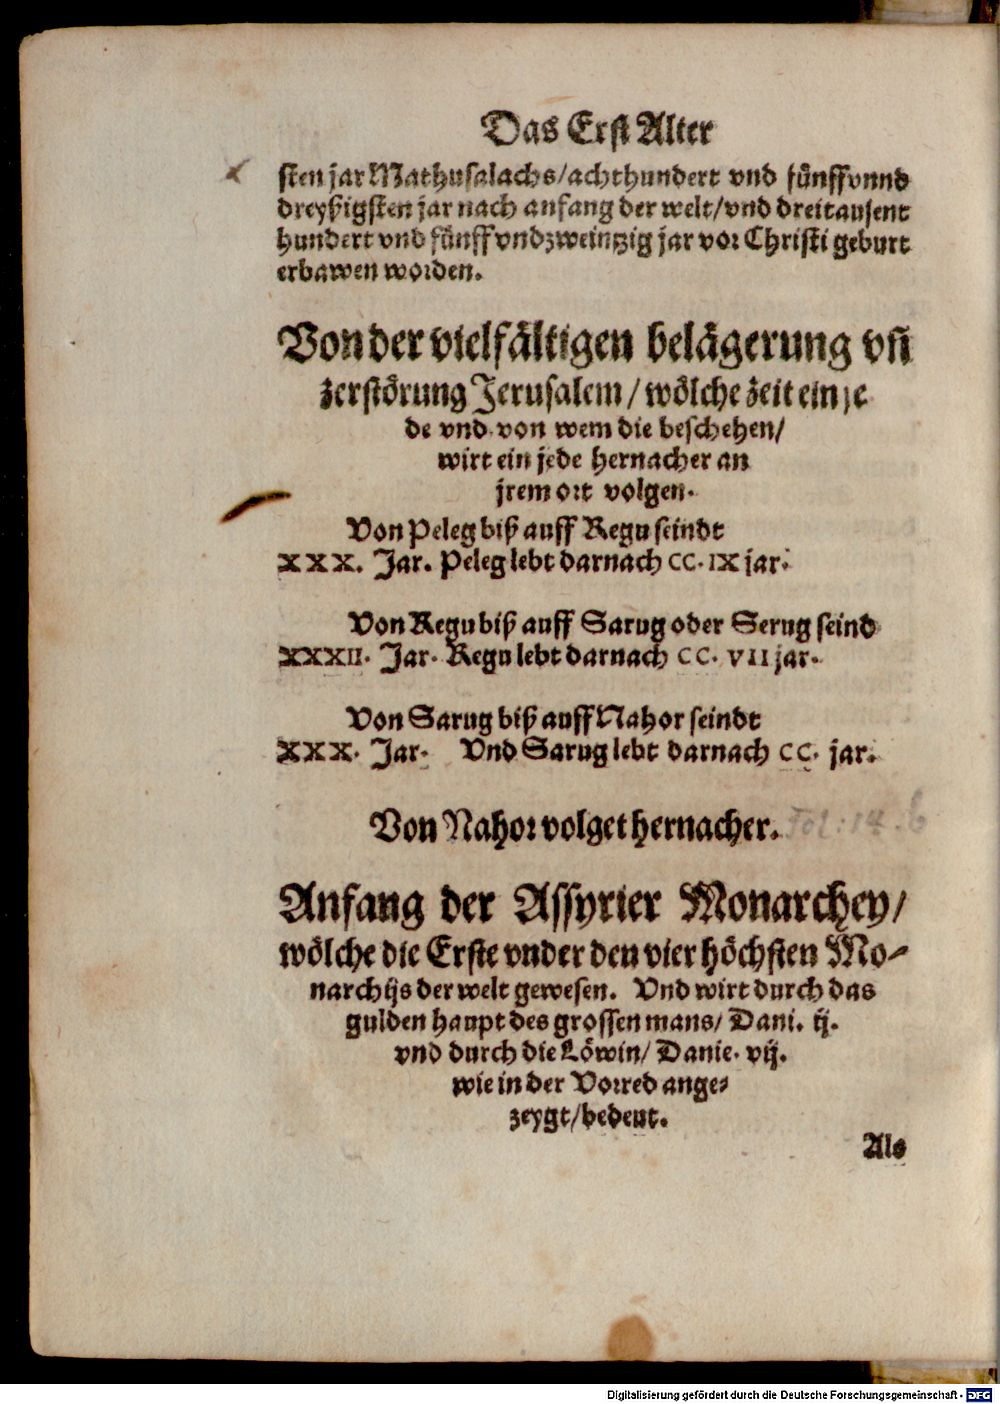 Das Erst Alter
sten jar Mathusalachs/achthundert vnd fünffvnnd
dreyßigsten jar nach anfang der welt/vnd dreitausent
hundert vnd fünff vndzweintzig jar vor Christi geburt
erbawen worden.
Von der vielfältigen belägerung vñ
zerstörung Jerusalem/ wölche zeit ein je
de vnd von wem die beschehen/
wirt ein jede hernacher an
jrem ort volgen.
Von Peleg biß auff Regu seindt
XXX. Jar. Peleg lebt darnach CC. IX jar.
Von Regu biß auff Sarug oder Serug seind
XXXII. Jar. Regu lebt darnach CC. VII jar.
Von Sarug biß auff Nahor seindt
XXX. Jar. Vnd Sarug lebt darnach CC. jar.
Von Nahor volget hernacher.
Anfang der Assyrier Monarchey/
wölche die Erste vnder den vier höchsten Mo-
narchijs der welt gewesen. Vnd wirt durch das
gulden haupt des grossen mans/ Dani. ij.
vnd durch die Löwin/ Danie. vij.
wie in der Vorred ange-
zeygt/bedeut.
Als
Digitalisierung gefördert durch die Deutsche Forschungsgemeinschaft - DFG